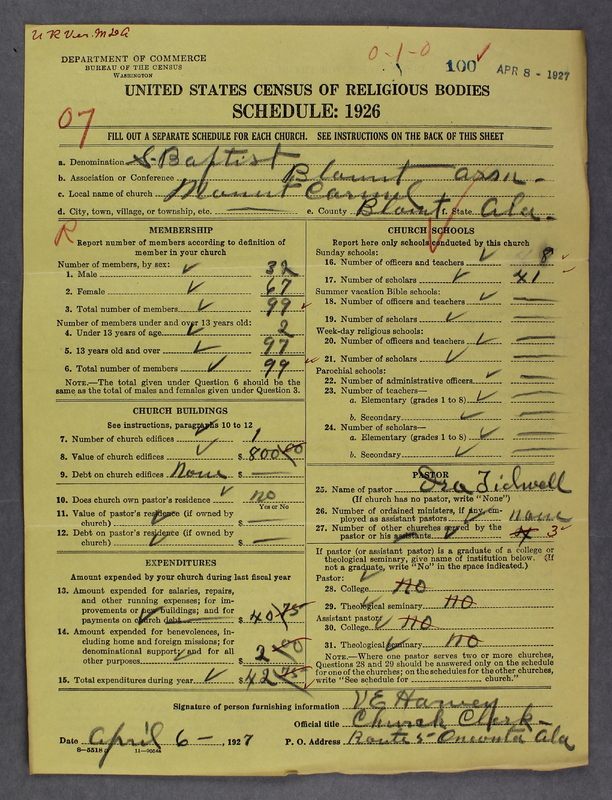 U R Ver. M & A
DEPARTMENT OF COMMERCE
BUREAU OF THE CENSUS
WASHINGTON
0-1-0
100
APR 8 - 1927
UNITED STATES CENSUS OF RELIGIOUS BODIES
SCHEDULE: 1926
07
FILL OUT A SEPARATE SCHEDULE FOR EACH CHURCH. SEE INSTRUCTIONS ON THE BACK OF THIS SHEET
a. Denomination S. Baptist
b. Association or Conference Blount assn.
c. Local name of church Mount Carmel
d. City, town, village, or township, etc. — e. County Blount f. State Ala.
R
MEMBERSHIP
Report number of members according to definition of member in your church
Number of members, by sex:
1. Male 32
2. Female 67
3. Total number of members 99
Number of members under and over 13 years old:
4. Under 13 years of age 2
5. 13 years old and over 97
6. Total number of members 99
NOTE.—The total given under Question 6 should be the same as the total of males and females given under Question 3.
CHURCH BUILDINGS
See instructions, paragraphs 10 to 12
7. Number of church edifices 1
8. Value of church edifices $ 800.00
9. Debt on church edifices None $ —
10. Does church own pastor's residence no
Yes or No
11. Value of pastor's residence (if owned by church) $ —
12. Debt on pastor's residence (if owned by church) $ —
EXPENDITURES
Amount expended by your church during last fiscal year
13. Amount expended for salaries, repairs, and other running expenses; for improvements or new buildings; and for payments on church debt $ 40.75
14. Amount expended for benevolences, including home and foreign missions; for denominational support; and for all other purposes $ 2.00
15. Total expenditures during year $ 42.75
CHURCH SCHOOLS
Report here only schools conducted by this church
Sunday schools:
16. Number of officers and teachers 8
17. Number of scholars 41
Summer vacation Bible schools:
18. Number of officers and teachers —
19. Number of scholars —
Week-day religious schools:
20. Number of officers and teachers —
21. Number of scholars —
Parochial schools:
22. Number of administrative officers —
23. Number of teachers—
a. Elementary (grades 1 to 8) —
b. Secondary —
24. Number of scholars—
a. Elementary (grades 1 to 8) —
b. Secondary —
PASTOR
25. Name of pastor Ora Tidwell
(If church has no pastor, write "None")
26. Number of ordained ministers, if any, employed as assistant pastors none
27. Number of other churches served by the pastor or his assistants 3
If pastor (or assistant pastor) is a graduate of a college or theological seminary, give name of institution below. (If not a graduate, write "No" in the space indicated.)
Pastor:
28. College no
29. Theological seminary no
Assistant pastor:
30. College no
31. Theological seminary no
NOTE.—Where one pastor serves two or more churches, Questions 28 and 29 should be answered only on the schedule for one of the churches; on the schedules for the other churches, write "See schedule for ______ church."
Signature of person furnishing information V E Harvey
Official title Church Clerk
Date April 6 —, 1927 P. O. Address Route 5- Oneonta Ala
8-5518 a 11-9554